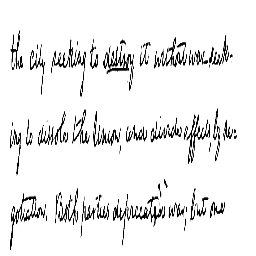 the city seeking to destroy it without war-seek-
ing to dissole the Union, and divide effects, by ne-
gotiation. Both parties deprecated war, but one